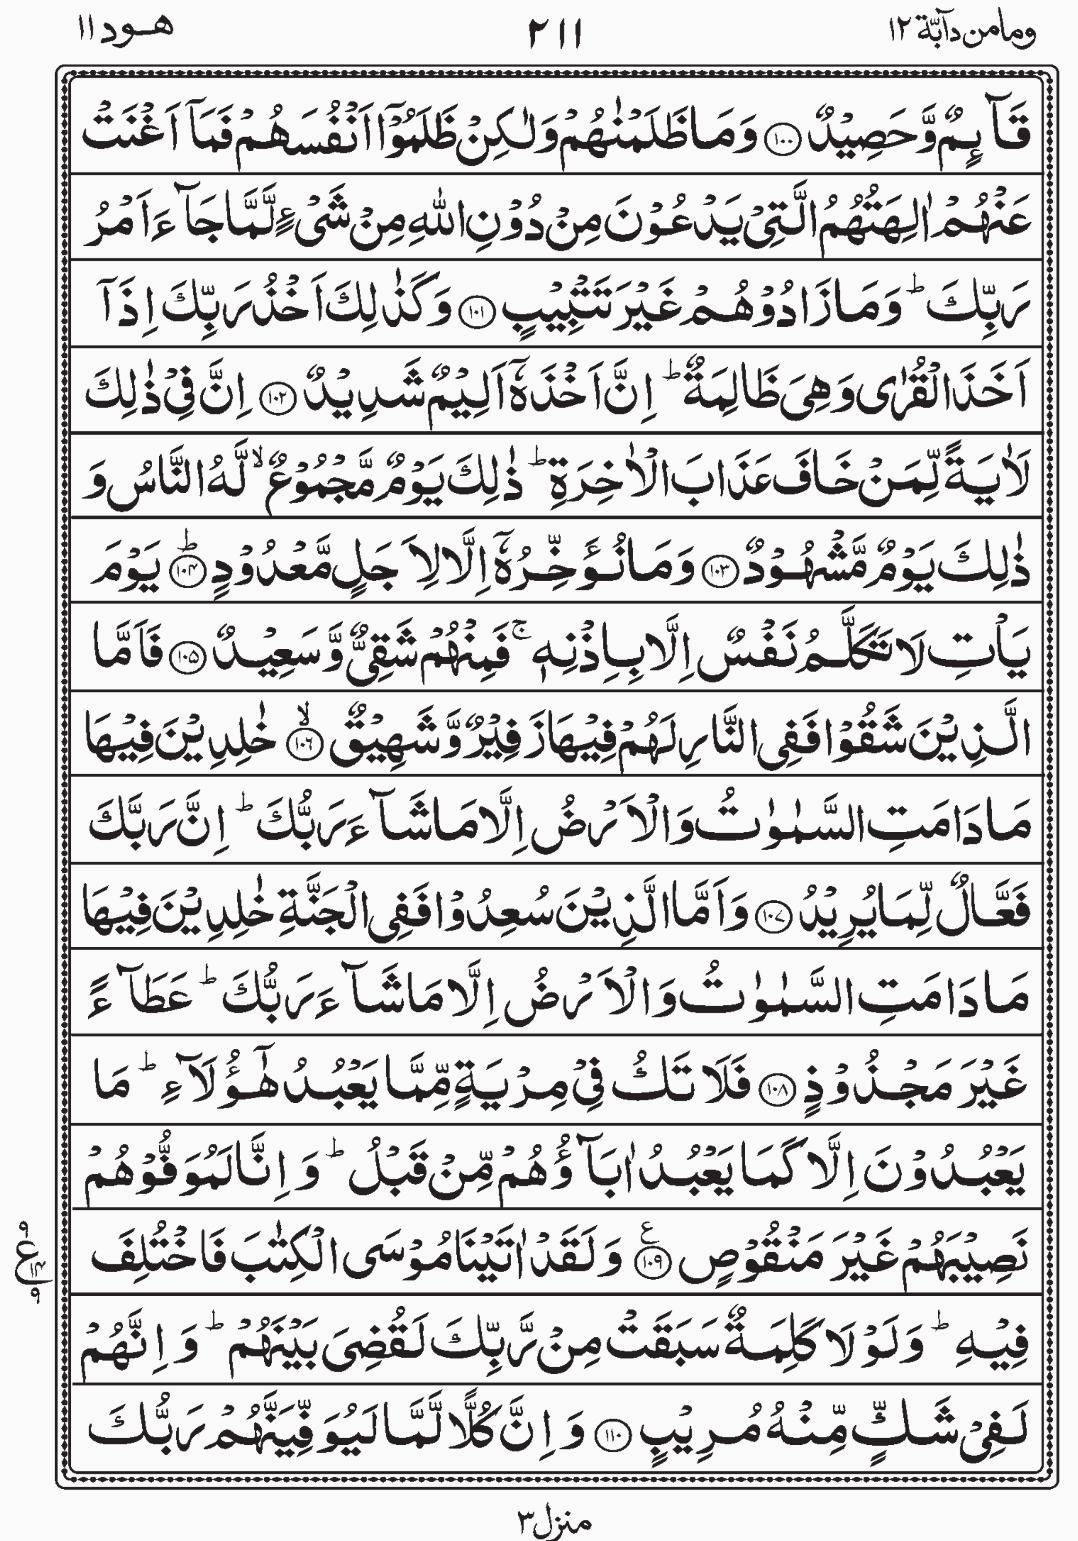 وما من دآبّة ١٢
٢١١
هود ١١
قَآئِمٌ وَّحَصِيْدٌ ﴿١٠٠﴾ وَمَا ظَلَمْنٰهُمْ وَلٰكِنْ ظَلَمُوْۤا اَنْفُسَهُمْ فَمَاۤ اَغْنَتْ
عَنْهُمْ اٰلِهَتُهُمُ الَّتِيْ يَدْعُوْنَ مِنْ دُوْنِ اللّٰهِ مِنْ شَيْءٍ لَّمَّا جَآءَ اَمْرُ
رَبِّكَ ؕ وَمَا زَادُوْهُمْ غَيْرَ تَتْبِيْبٍ ﴿١٠١﴾ وَكَذٰلِكَ اَخْذُ رَبِّكَ اِذَاۤ
اَخَذَ الْقُرٰى وَهِيَ ظَالِمَةٌ ؕ اِنَّ اَخْذَهٗۤ اَلِيْمٌ شَدِيْدٌ ﴿١٠٢﴾ اِنَّ فِيْ ذٰلِكَ
لَاٰيَةً لِّمَنْ خَافَ عَذَابَ الْاٰخِرَةِ ؕ ذٰلِكَ يَوْمٌ مَّجْمُوْعٌ ۙ لَّهُ النَّاسُ وَ
ذٰلِكَ يَوْمٌ مَّشْهُوْدٌ ﴿١٠٣﴾ وَمَا نُؤَخِّرُهٗۤ اِلَّا لِاَجَلٍ مَّعْدُوْدٍ ؕ﴿١٠٤﴾ يَوْمَ
يَاْتِ لَا تَكَلَّمُ نَفْسٌ اِلَّا بِاِذْنِهٖ ۚ فَمِنْهُمْ شَقِيٌّ وَّسَعِيْدٌ ﴿١٠٥﴾ فَاَمَّا
الَّذِيْنَ شَقُوْا فَفِي النَّارِ لَهُمْ فِيْهَا زَفِيْرٌ وَّشَهِيْقٌ ۙ﴿١٠٦﴾ خٰلِدِيْنَ فِيْهَا
مَا دَامَتِ السَّمٰوٰتُ وَالْاَرْضُ اِلَّا مَا شَآءَ رَبُّكَ ؕ اِنَّ رَبَّكَ
فَعَّالٌ لِّمَا يُرِيْدُ ﴿١٠٧﴾ وَاَمَّا الَّذِيْنَ سُعِدُوْا فَفِي الْجَنَّةِ خٰلِدِيْنَ فِيْهَا
مَا دَامَتِ السَّمٰوٰتُ وَالْاَرْضُ اِلَّا مَا شَآءَ رَبُّكَ ؕ عَطَآءً
غَيْرَ مَجْذُوْذٍ ﴿١٠٨﴾ فَلَا تَكُ فِيْ مِرْيَةٍ مِّمَّا يَعْبُدُ هٰۤؤُلَآءِ ؕ مَا
يَعْبُدُوْنَ اِلَّا كَمَا يَعْبُدُ اٰبَآؤُهُمْ مِّنْ قَبْلُ ؕ وَاِنَّا لَمُوَفُّوْهُمْ
نَصِيْبَهُمْ غَيْرَ مَنْقُوْصٍ ﴿١٠٩﴾ۧ وَلَقَدْ اٰتَيْنَا مُوْسَى الْكِتٰبَ فَاخْتُلِفَ
٩ ع ١٤ ٩
فِيْهِ ؕ وَلَوْلَا كَلِمَةٌ سَبَقَتْ مِنْ رَّبِّكَ لَقُضِيَ بَيْنَهُمْ ؕ وَاِنَّهُمْ
لَفِيْ شَكٍّ مِّنْهُ مُرِيْبٍ ﴿١١٠﴾ وَاِنَّ كُلًّا لَّمَّا لَيُوَفِّيَنَّهُمْ رَبُّكَ
منزل ٣